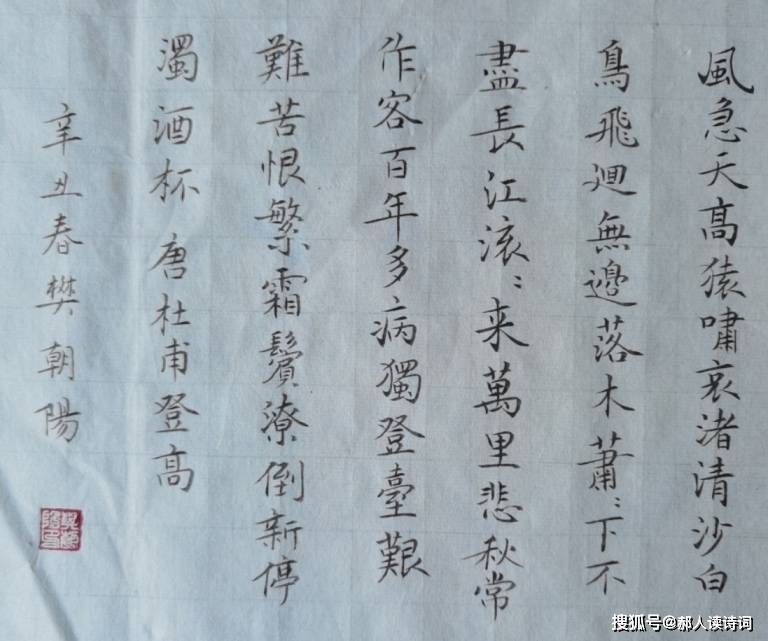 風急天高猿嘯哀渚清沙白
鳥飛迴無邊落木蕭〻下不
盡長江滚〻来萬里悲秋常
作客百年多病獨登臺艱
難苦恨繁霜鬢潦倒新停
濁酒杯 唐杜甫登高
辛丑春樊朝陽
搜狐号@郝人读诗词